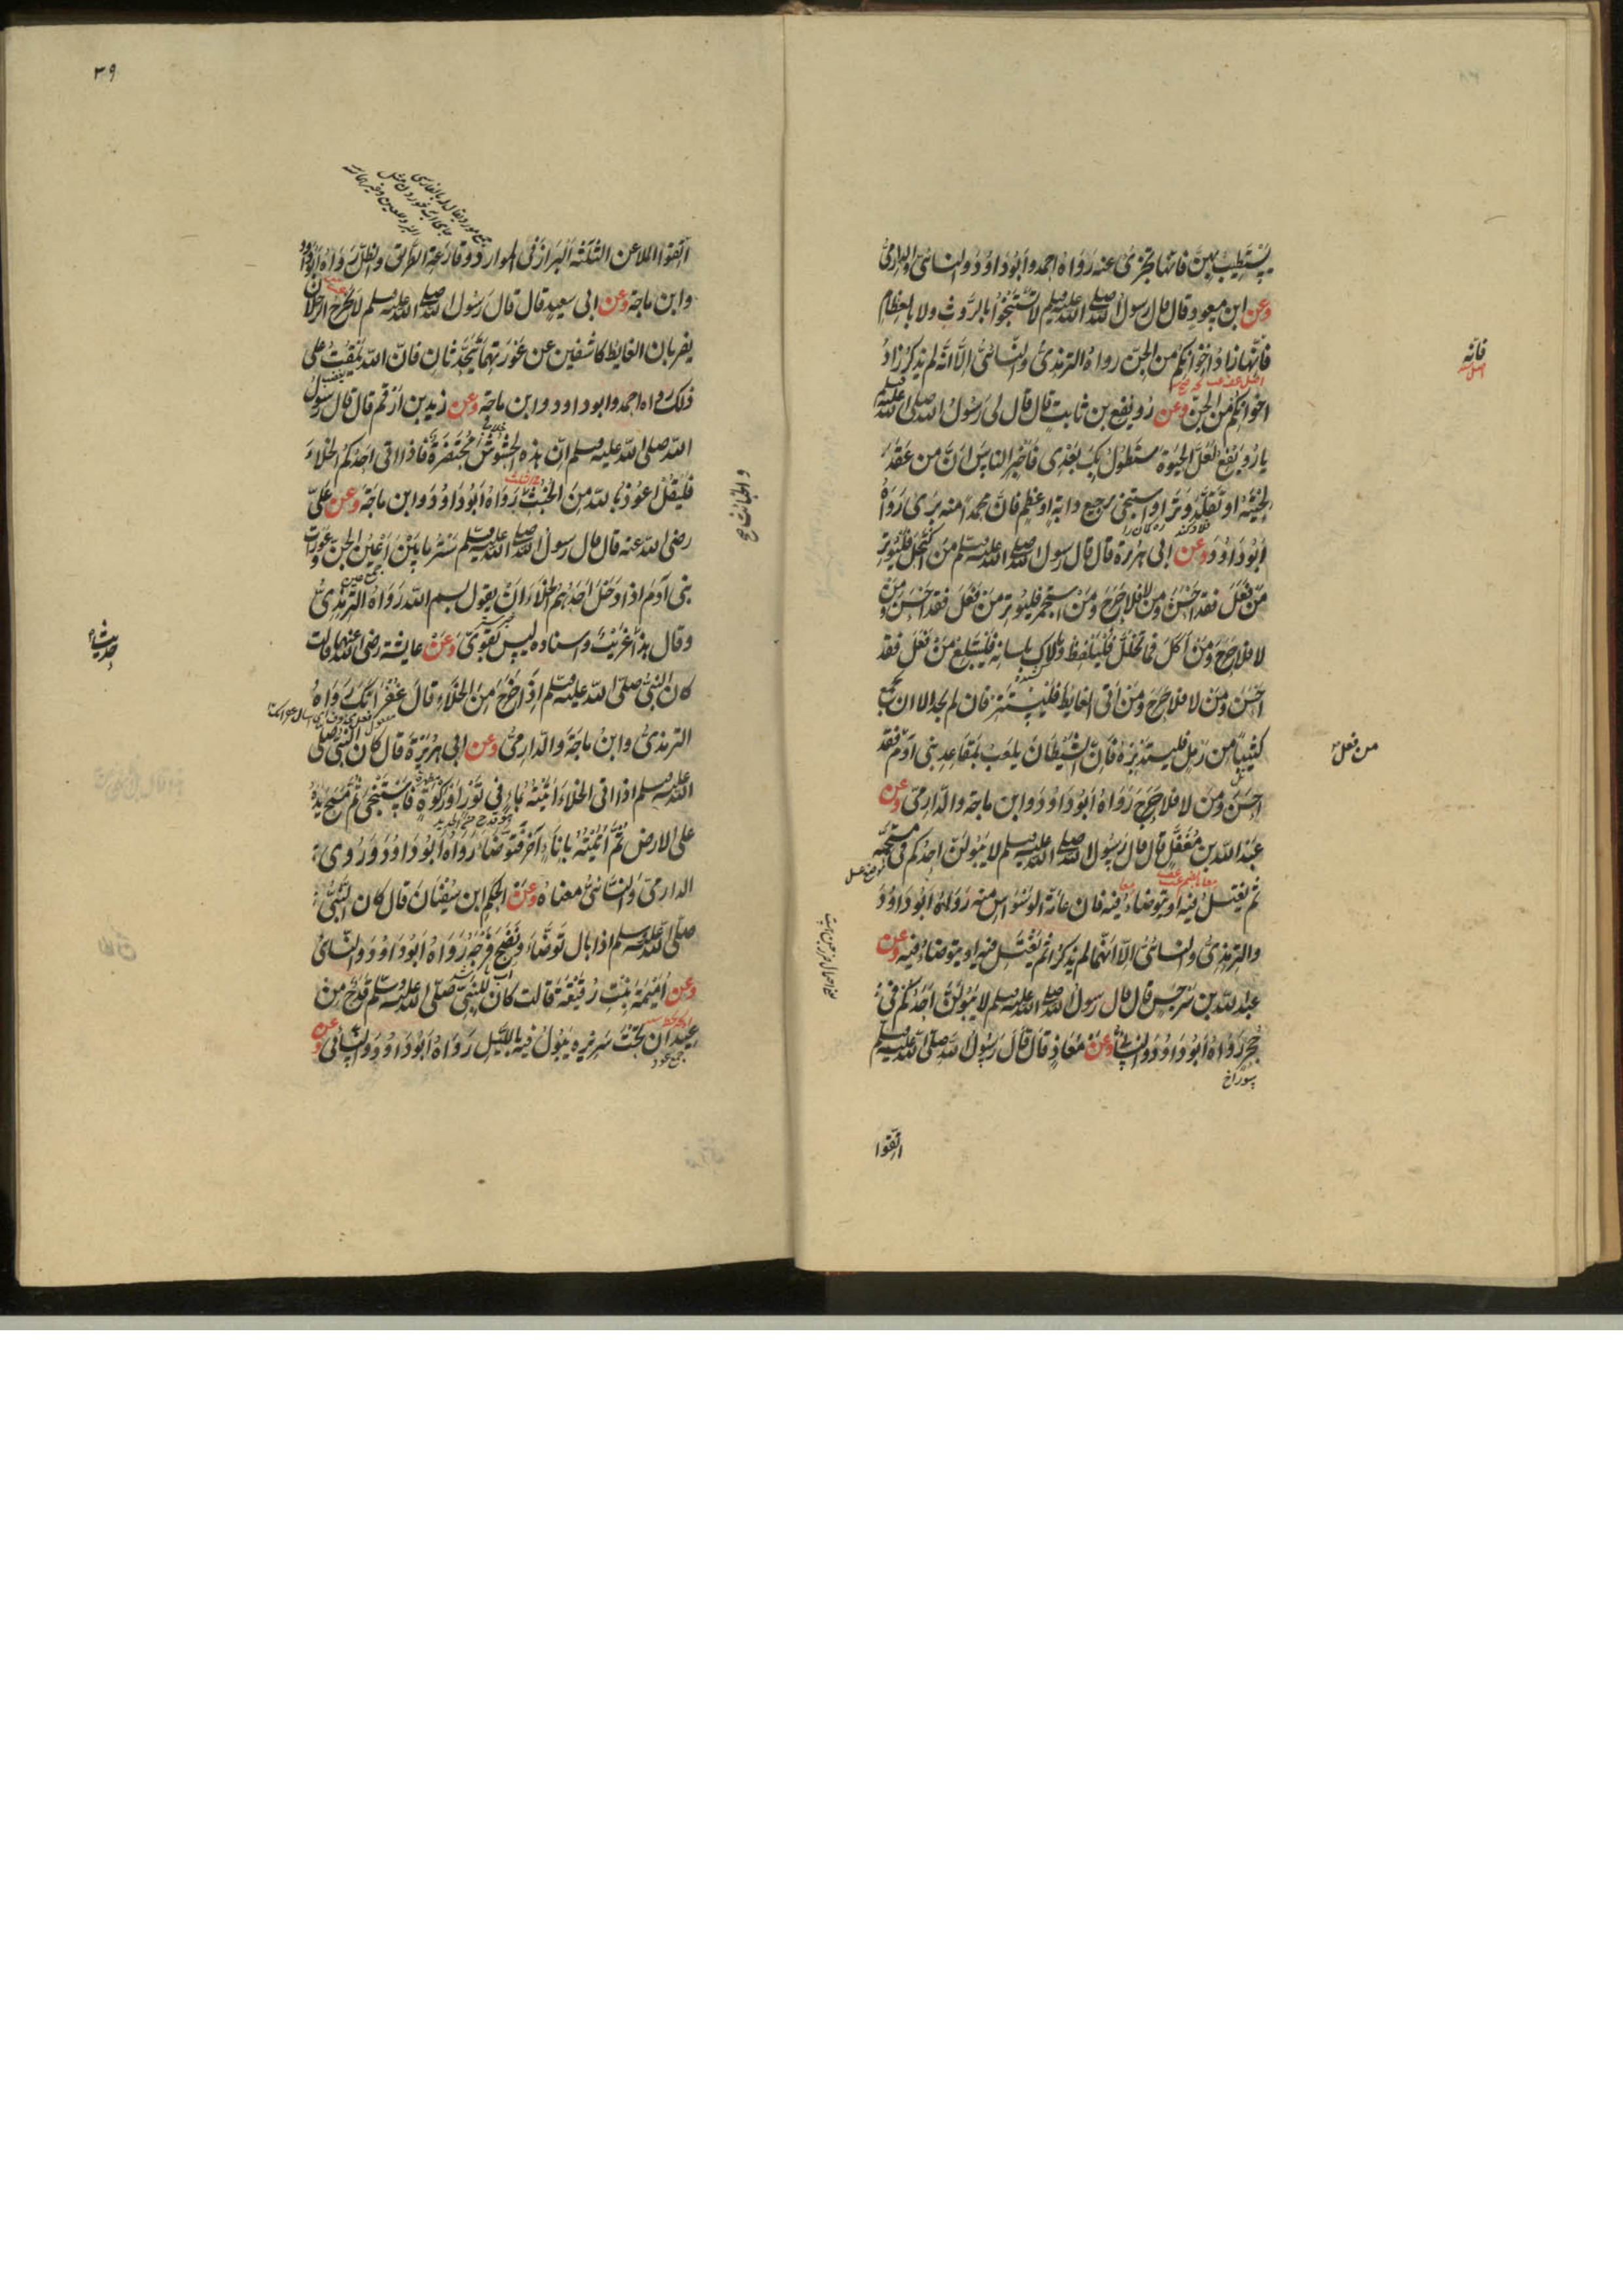 يستطيب بهن فانها تجزئ عنه رواه احمد وابو داود والنسائی والدارمی
وعن ابن مسعود قال قال رسول الله صلی الله علیه وسلم لا تستنجوا بالروث ولا بالعظام
فانها زاد اخوانکم من الجن رواه الترمذی والنسائی الا انه لم یذکر زاد
اخوانکم من الجن وعن رویفع بن ثابت قال قال لی رسول الله صلی الله علیه وسلم
یا رویفع لعل الحیوة ستطول بک بعدی فاخبر الناس ان من عقد
لحیته او تقلد وترا او استنجی برجیع دابة او عظم فان محمدا منه بری رواه
ابو داود وعن ابی هریرة قال قال رسول الله صلی الله علیه وسلم من اکتحل فلیوتر
من فعل فقد احسن ومن لا فلا حرج ومن استجمر فلیوتر من فعل فقد احسن ومن
لا فلا حرج ومن اکل فما تخلل فلیلفظ وما لاک بلسانه فلیبتلع من فعل فقد
احسن ومن لا فلا حرج ومن اتی الغایط فلیستتر فان لم یجد الا ان یجمع
کثیبا من رمل فلیستدبره فان الشیطان یلعب بمقاعد بنی ادم فقد
احسن ومن لا فلا حرج رواه ابو داود وابن ماجة والدارمی وعن
عبد الله بن مغفل قال قال رسول الله صلی الله علیه وسلم لا یبولن احدکم فی مستحمه
ثم یغتسل فیه او یتوضاء فیه فان عامة الوسواس منه رواه ابو داود
والترمذی والنسائی الا انهما لم یذکرا ثم یغتسل فیه او یتوضاء فیه وعن
عبد الله بن سرجس قال قال رسول الله صلی الله علیه وسلم لا یبولن احدکم فی
جحر رواه ابو داود والنسائی وعن معاذ قال قال رسول الله صلی الله علیه وسلم
سوراخ
اتقوا
فانه
من فعل
۳۹
اتقوا الملاعن الثلثة البراز فی الموارد وقارعة الطریق والظل رواه ابو داود
وابن ماجة وعن ابی سعید قال قال رسول الله صلی الله علیه وسلم لا یخرج الرجلان
یضربان الغایط کاشفین عن عورتهما یتحدثان فان الله یمقت علی
ذلک رواه احمد وابو داود وابن ماجة وعن زید بن ارقم قال قال رسول
الله صلی الله علیه وسلم ان هذه الحشوش محتضرة فاذا اتی احدکم الخلاء
فلیقل اعوذ بالله من الخبث رواه ابو داود وابن ماجة وعن علی
رضی الله عنه قال قال رسول الله صلی الله علیه وسلم ستر ما بین اعین الجن وعورات
بنی آدم اذا دخل احدهم الخلاء ان یقول بسم الله رواه الترمذی
وقال هذا غریب واسناده لیس بقوی وعن عایشة رضی الله عنها قالت
کان النبی صلی الله علیه وسلم اذا خرج من الخلاء قال غفرانک رواه
الترمذی وابن ماجة والدارمی وعن ابی هریرة قال کان النبی صلی
الله علیه وسلم اذا اتی الخلاء اتیته بماء فی تور او رکوة فاستنجی ثم مسح یده
علی الارض ثم اتیته باناء آخر فتوضاء رواه ابو داود وروی
الدارمی والنسائی معناه وعن الحکم ابن سفیان قال کان النبی
صلی الله علیه وسلم اذا بال توضاء ونضح فرجه رواه ابو داود والنسائی
وعن امیمة بنت رقیقة قالت کان للنبی صلی الله علیه وسلم قدح من
عیدان تحت سریره یبول فیه باللیل رواه ابو داود والنسائی وعن
جمع عود
والخبائث صح
حدیث